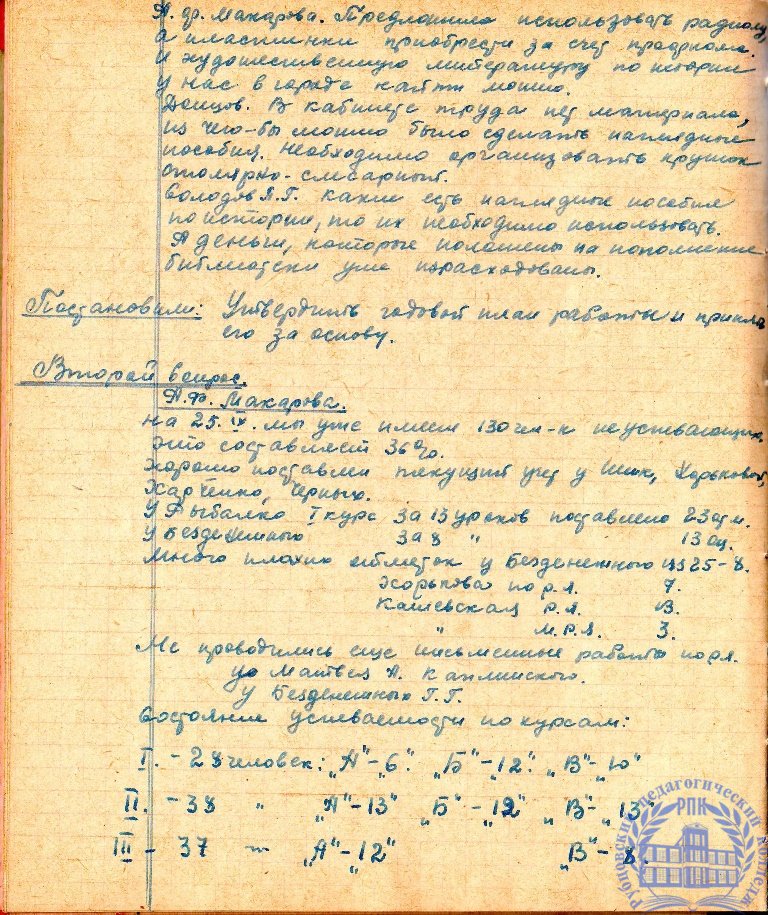 А. Ф. Макарова. Предложила использовать радиолу,
а пластинки приобрести за счет профкома.
И художественную литературу по истории
у нас в городе найти можно.
Донцов. В кабинете труда нет материала,
из чего-бы можно было сделать наглядные
пособия. Необходимо организовать кружок
столярно-слесарный.
Солодов П.Г. Какие есть наглядные пособия
по истории, то их необходимо использовать.
А деньги, которые положены на пополнение
библиотеки уже израсходованы.
Постановили: Утвердить годовой план работы и принять
его за основу.
Второй вопрос.
А.Ф. Макарова.
На 25. IX. мы уже имеем 130 чел-к неуспевающих.
Это составляет 36%.
Хорошо поставлен текущий учет у Шик, Харьковой,
Харченко, Черных.
У Рыбалко I курс за 13 уроков поставлено 23 отм.
У Безденежного за 8 " 13 оц.
Много плохих отметок у Безденежного из 25-8.
Харькова по р.я. 7.
Кашевская р.я. 13.
" м.р.я. 3.
Не проводились еще письменные работы по р.я.
у Матвея А. Каплинского.
У Безденежных Г.Г.
Состояние успеваемости по курсам:
I. - 28 человек: "А"-"6". "Б"-"12". "В"-"10"
II. - 38 " "А"-13" "Б"-"12" "В"-"13"
III - 37 "А"-"12" "В"-8.
Рубцовский педагогический колледж
РПК